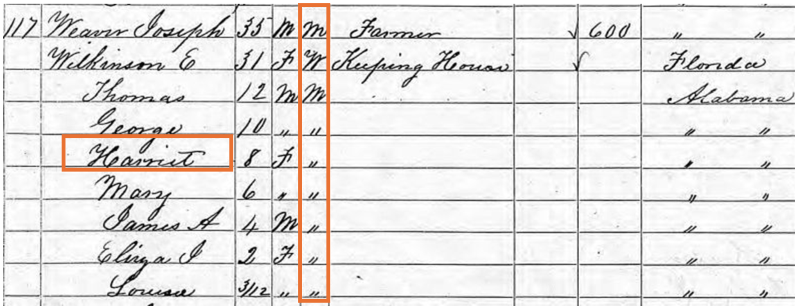 117 Weaver Joseph 35 M M Farmer √ 600 " "
Wilkinson E 31 F W Keeping House √ Florida
Thomas 12 M M Alabama
George 10 " " " "
Harriet 8 F " " "
Mary 6 " " " "
James A 4 M " " "
Eliza J 2 F " " "
Louisa 3/12 " " " "